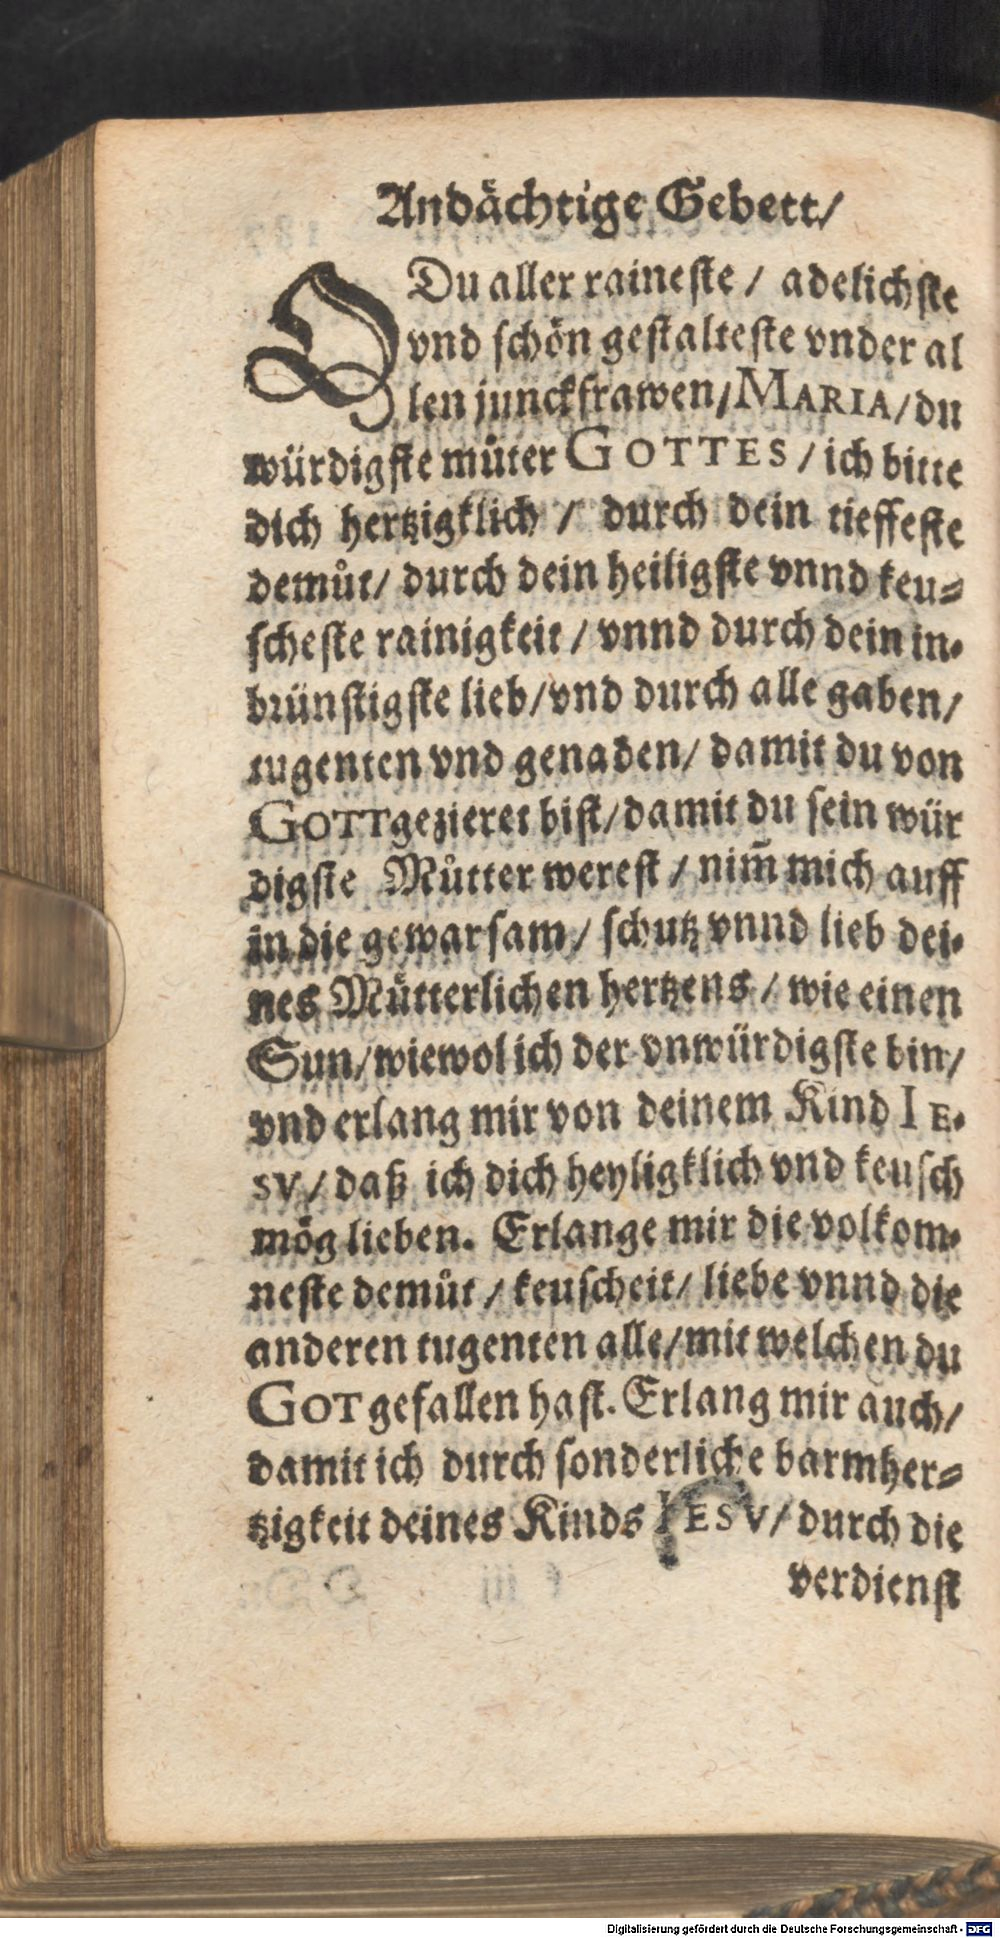 Andächtige Gebett/
O Du aller raineste / adelichste
vnd schön gestalteste vnder al
len junckfrawen/MARIA/du
würdigste můter GOTTES / ich bitte
dich hertzigklich / durch dein tieffeste
demůt/ durch dein heiligste vnnd keu-
scheste rainigkeit / vnnd durch dein in-
brünstigste lieb/vnd durch alle gaben/
tugenten vnd genaden/ damit du von
GOTT gezieret bist/damit du sein wür
digste Můtter werest / nim̃ mich auff
in die gewarsam/ schutz vnnd lieb dei-
nes Mütterlichen hertzens / wie einen
Sun/wiewol ich der vnwürdigste bin/
vnd erlang mir von deinem Kind IE-
SV/ daß ich dich heyligklich vnd keusch
mög lieben. Erlange mir die volkom-
neste demůt / keuscheit/ liebe vnnd die
anderen tugenten alle/mit welchen du
GOT gefallen hast. Erlang mir auch/
damit ich durch sonderliche barmher-
tzigkeit deines Kinds IESV/ durch die
verdienst
Digitalisierung gefördert durch die Deutsche Forschungsgemeinschaft - DFG